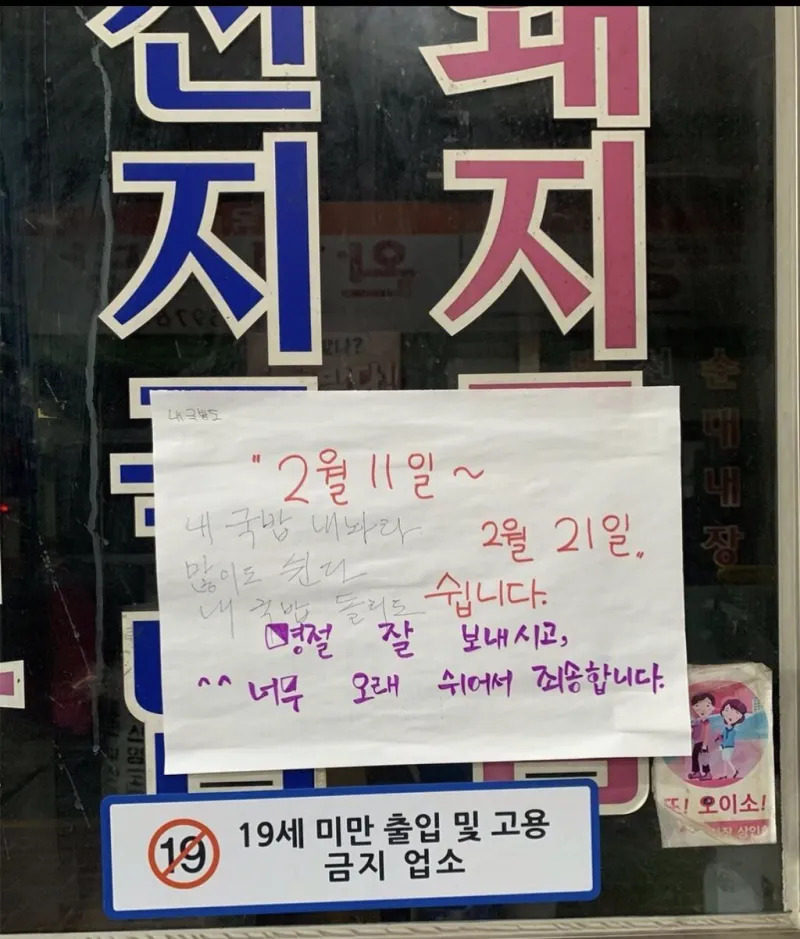 전 돼
지 지
내 국밥도
" 2월 11일 ~
2월 21일 "
쉽니다.
내 국밥 내놔라
많이도 쉰다
내 국밥 돌리도
명절 잘 보내시고,
^^ 너무 오래 쉬어서 죄송합니다.
순대내장
또! 오이소!
19
19세 미만 출입 및 고용
금지 업소